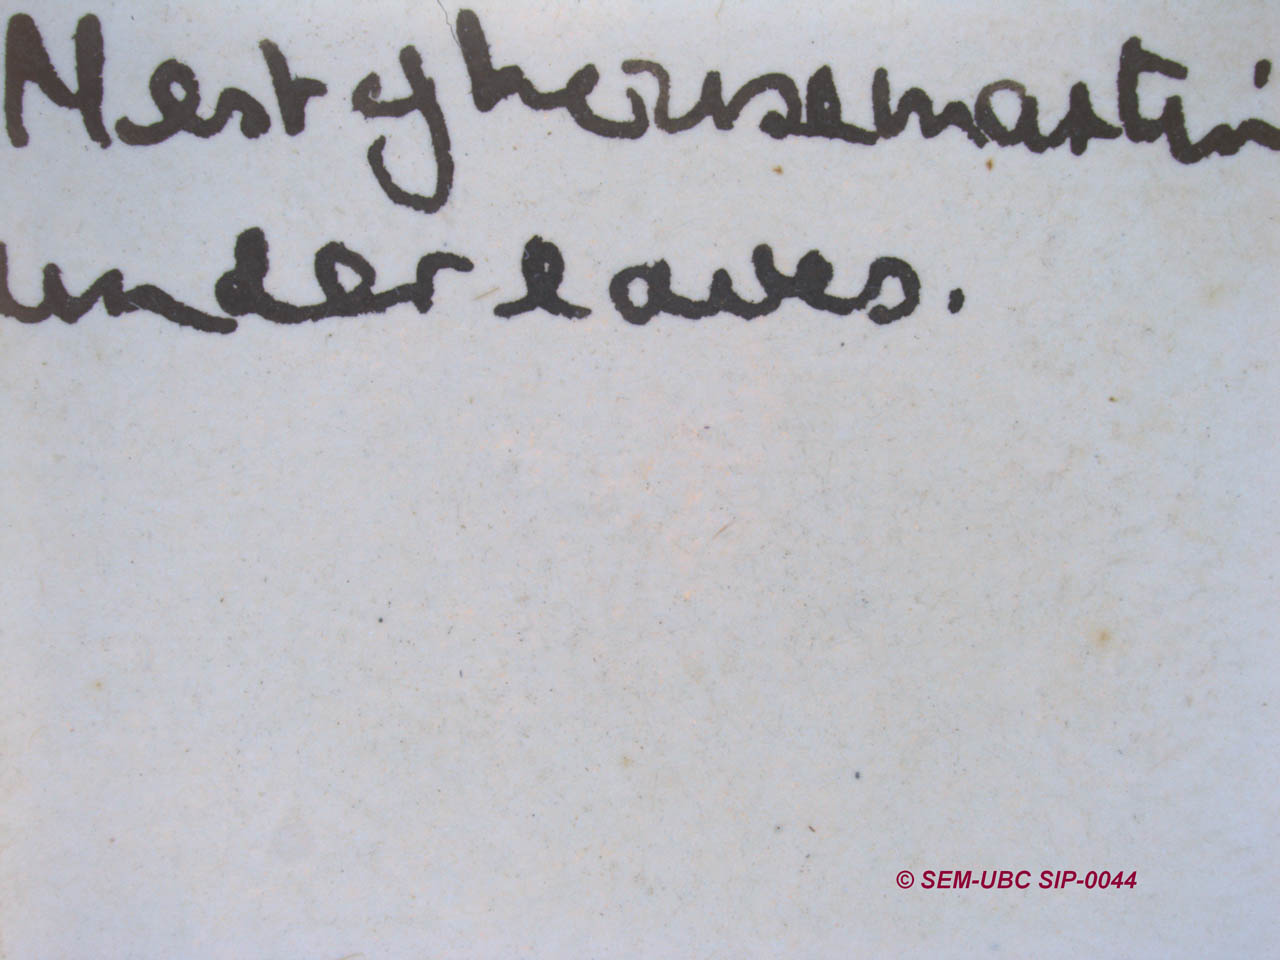 Nest of house martin
under eaves.
© SEM-UBC SIP-0044